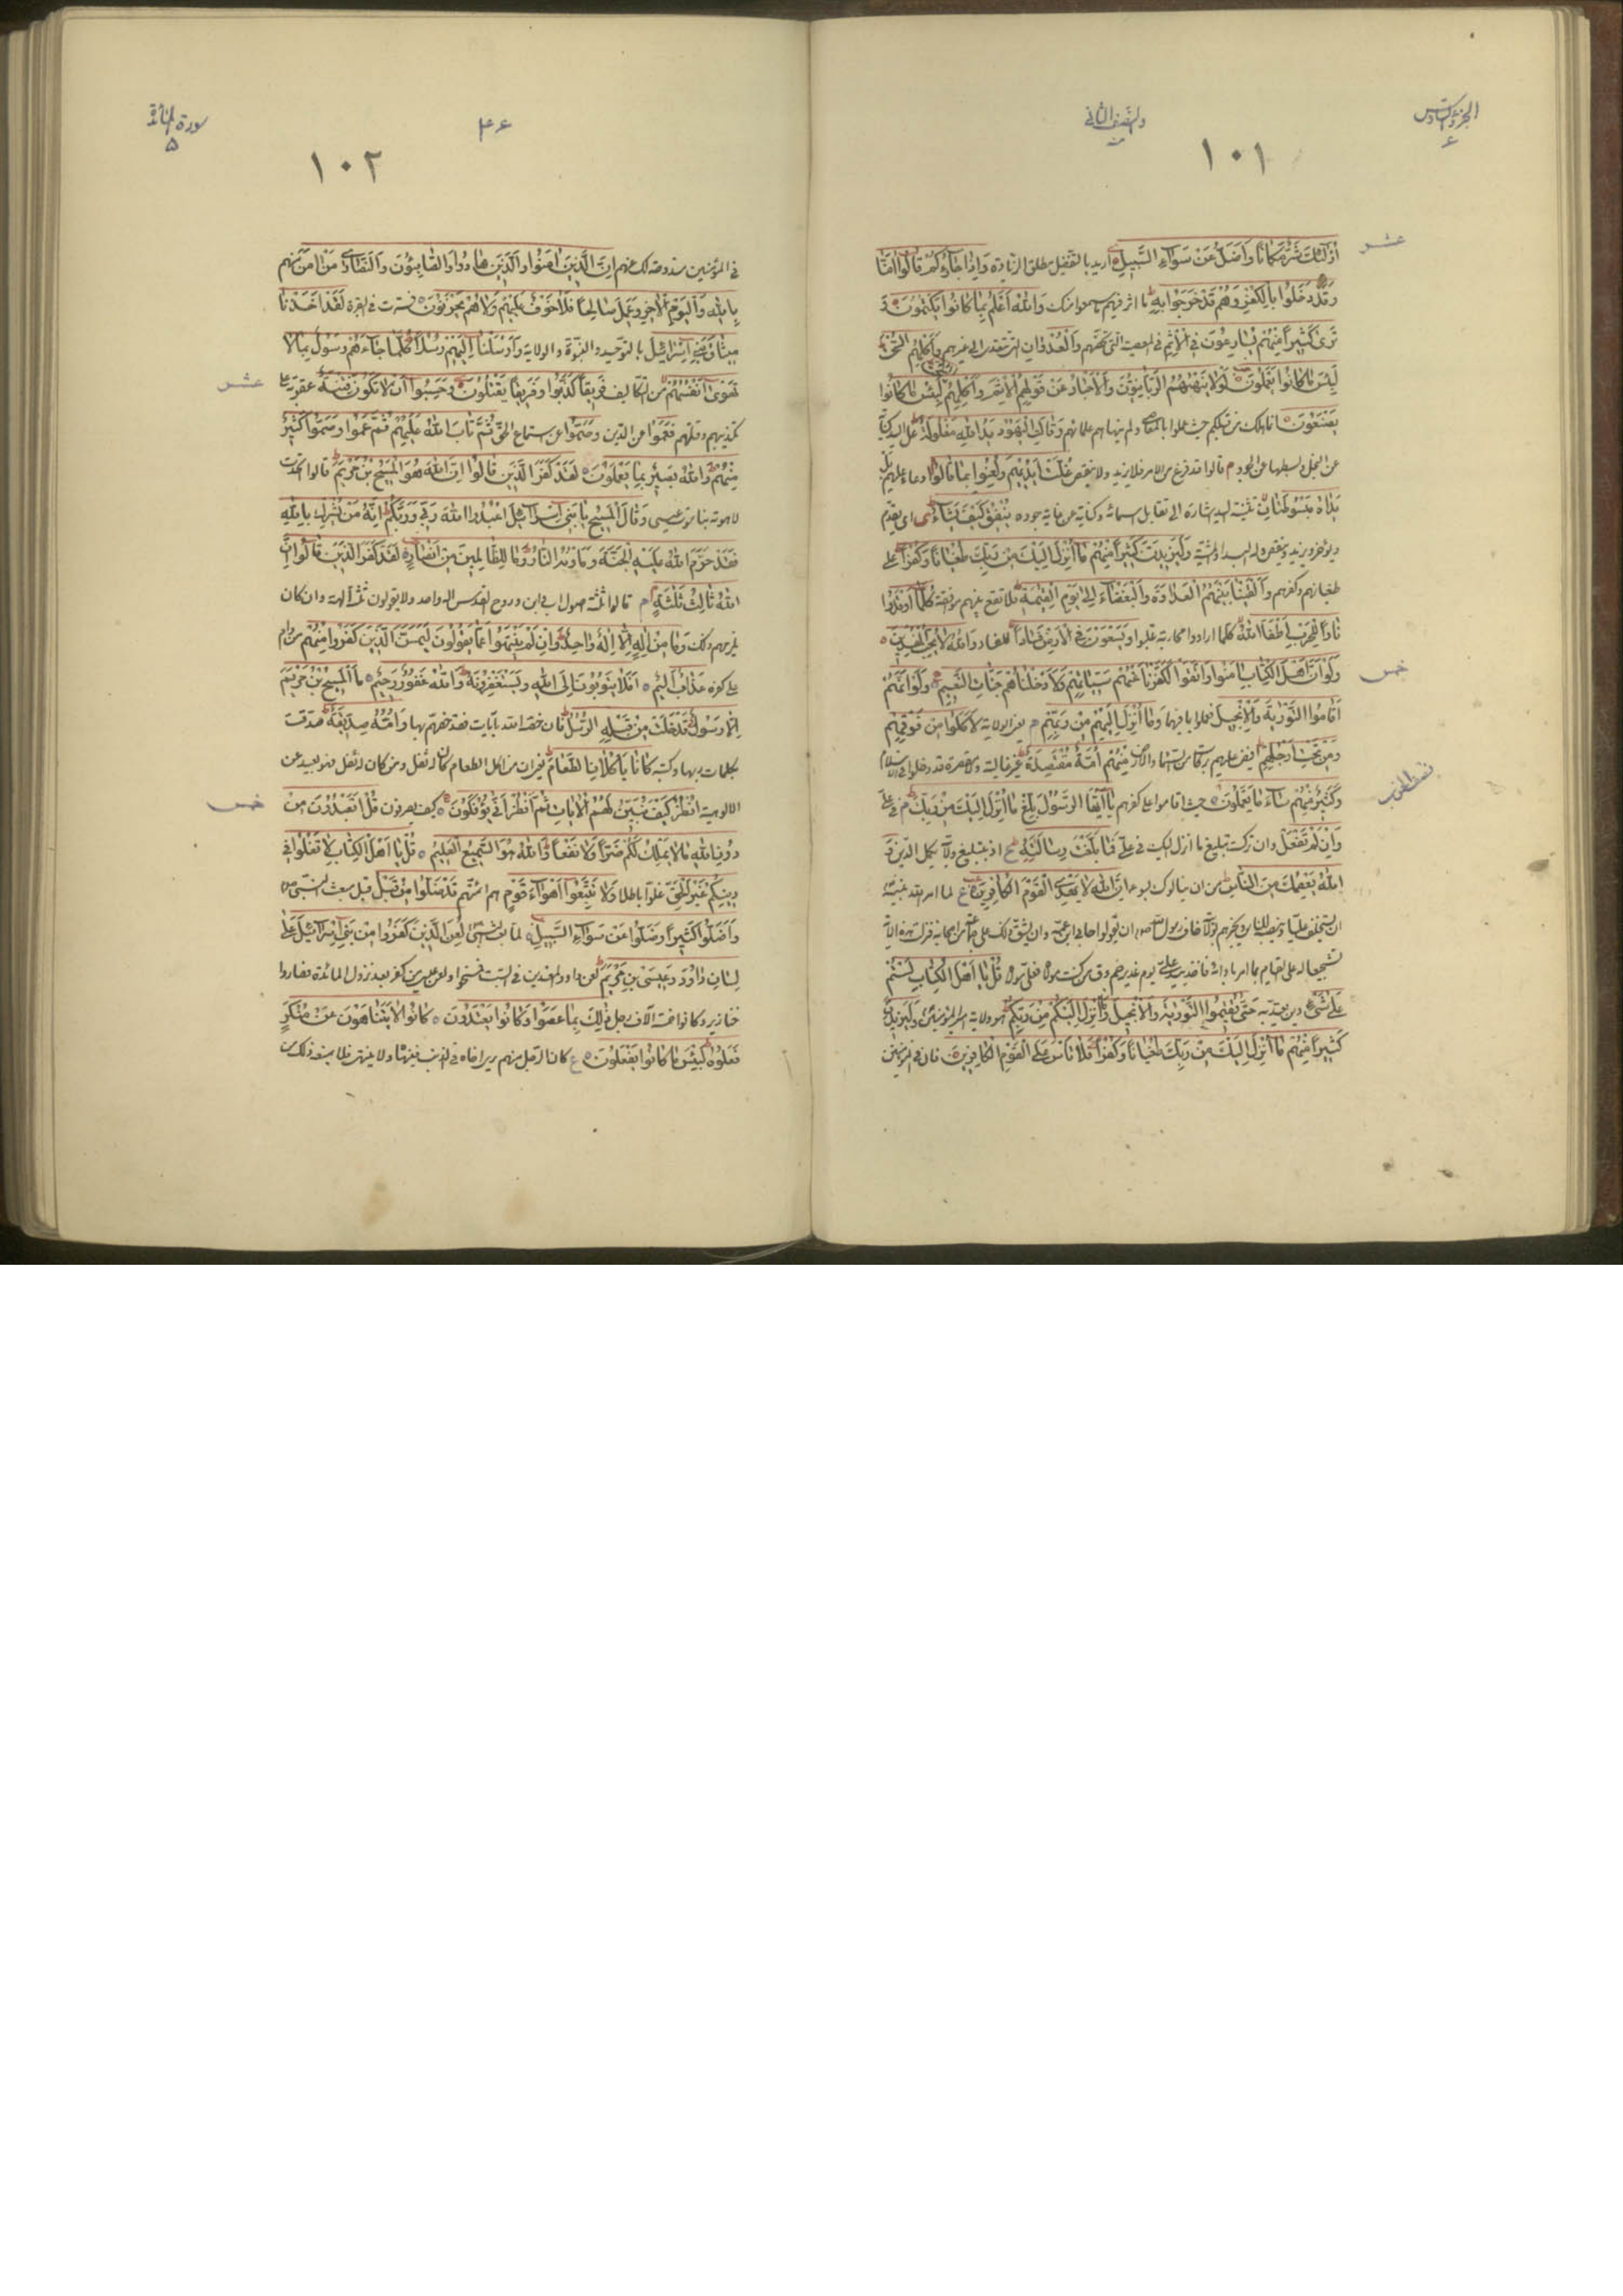 الجزء السادس
٤
والنصف الثاني
١٠١
عشر
أُولٰئِكَ شَرٌّ مَكَانًا وَأَضَلُّ عَنْ سَوَاءِ السَّبِيلِ اريد بالتفضيل مطلق الزيادة وَإِذَا جَاءُوكُمْ قَالُوا آمَنَّا
وَقَدْ دَخَلُوا بِالْكُفْرِ وَهُمْ قَدْ خَرَجُوا بِهِ ما اثر فيهم ما سمعوا منك وَاللّٰهُ أَعْلَمُ بِمَا كَانُوا يَكْتُمُونَ وَ
تَرَىٰ كَثِيرًا مِنْهُمْ يُسَارِعُونَ فِي الْإِثْمِ في المعصية التي تخصهم وَالْعُدْوَانِ التي تتعدى الى غيرهم وَأَكْلِهِمُ السُّحْتَ
لَبِئْسَ مَا كَانُوا يَعْمَلُونَ لَوْلَا يَنْهَاهُمُ الرَّبَّانِيُّونَ وَالْأَحْبَارُ عَنْ قَوْلِهِمُ الْإِثْمَ وَأَكْلِهِمُ لَبِئْسَ مَا كَانُوا
يَصْنَعُونَ انما هلك من قبلكم حيث عملوا بالمعاصي ولم ينهاهم علماؤهم وَقَالَتِ الْيَهُودُ يَدُ اللّٰهِ مَغْلُولَةٌ غل اليد كناية
عن البخل وبسطها عن الجود م قالوا قد فرغ من الامر فلا يزيد ولا ينقص غُلَّتْ أَيْدِيهِمْ وَلُعِنُوا بِمَا قَالُوا دعاء عليهم بَلْ
يَدَاهُ مَبْسُوطَتَانِ تثنية اليد اشارة الى تقابل اسمائه وكناية عن غاية جوده يُنْفِقُ كَيْفَ يَشَاءُ اى يقدم
ويؤخر ويزيد وينقص وله البداء والمشية وَلَيَزِيدَنَّ كَثِيرًا مِنْهُمْ مَا أُنْزِلَ إِلَيْكَ مِنْ رَبِّكَ طُغْيَانًا وَكُفْرًا على
طغيانهم وكفرهم وَأَلْقَيْنَا بَيْنَهُمُ الْعَدَاوَةَ وَالْبَغْضَاءَ إِلَىٰ يَوْمِ الْقِيٰمَةِ فلا تقع بينهم موافقة كُلَّمَا أَوْقَدُوا
نَارًا لِلْحَرْبِ أَطْفَأَهَا اللّٰهُ كلما ارادوا محاربة غلبوا وَيَسْعَوْنَ فِي الْأَرْضِ فَسَادًا للفساد وَاللّٰهُ لَا يُحِبُّ الْمُفْسِدِينَ
خمس
وَلَوْ أَنَّ أَهْلَ الْكِتَابِ آمَنُوا وَاتَّقَوْا لَكَفَّرْنَا عَنْهُمْ سَيِّئَاتِهِمْ وَلَأَدْخَلْنَاهُمْ جَنَّاتِ النَّعِيمِ وَلَوْ أَنَّهُمْ
أَقَامُوا التَّوْرٰيةَ وَالْإِنْجِيلَ فعملوا بما فيهما وَمَا أُنْزِلَ إِلَيْهِمْ مِنْ رَبِّهِمْ يعنى الولاية لَأَكَلُوا مِنْ فَوْقِهِمْ
وَمِنْ تَحْتِ أَرْجُلِهِمْ افيض عليهم بركات من السماء والارض مِنْهُمْ أُمَّةٌ مُقْتَصِدَةٌ غير غالية ولا مقصرة قد دخلوا في الاسلام
نصف الحزب
وَكَثِيرٌ مِنْهُمْ سَاءَ مَا يَعْمَلُونَ حيث اقاموا على كفرهم يَا أَيُّهَا الرَّسُولُ بَلِّغْ مَا أُنْزِلَ إِلَيْكَ مِنْ رَبِّكَ في على
وَإِنْ لَمْ تَفْعَلْ وان تركت تبليغ ما انزل اليك في على فَمَا بَلَّغْتَ رِسَالَتَهُ اذ بتبليغ ولايته يكمل الدين وَ
اللّٰهُ يَعْصِمُكَ مِنَ النَّاسِ من ان ينالوك بسوء إِنَّ اللّٰهَ لَا يَهْدِي الْقَوْمَ الْكَافِرِينَ لما امر الله نبيه
ان يستخلف عليا وينصبه للناس ويخبرهم بولايته خاف رسول الله ان يقولوا حابى ابن عمه وان يشق ذلك على جماعة من اصحابه فنزلت هذه الاية
تشجيعا له على القيام بما امر باداءه فاخذ بيد على يوم غدير خم وقال من كنت مولاه فعلي مولاه قُلْ يَا أَهْلَ الْكِتَابِ لَسْتُمْ
عَلَىٰ شَيْءٍ دين يعتد به حَتَّىٰ تُقِيمُوا التَّوْرٰيةَ وَالْإِنْجِيلَ وَمَا أُنْزِلَ إِلَيْكُمْ مِنْ رَبِّكُمْ هو ولاية امير المؤمنين وَلَيَزِيدَنَّ
كَثِيرًا مِنْهُمْ مَا أُنْزِلَ إِلَيْكَ مِنْ رَبِّكَ طُغْيَانًا وَكُفْرًا فَلَا تَأْسَ عَلَى الْقَوْمِ الْكَافِرِينَ فان في المؤمنين
سورة المائدة
٥
٤٤
١٠٢
في المؤمنين مندوحة لك عنهم إِنَّ الَّذِينَ آمَنُوا وَالَّذِينَ هَادُوا وَالصَّابِئُونَ وَالنَّصَارَىٰ مَنْ آمَنَ منهم
بِاللّٰهِ وَالْيَوْمِ الْآخِرِ وَعَمِلَ صَالِحًا فَلَا خَوْفٌ عَلَيْهِمْ وَلَا هُمْ يَحْزَنُونَ فسرت في البقرة لَقَدْ أَخَذْنَا
مِيثَاقَ بَنِي إِسْرَائِيلَ بالتوحيد والنبوة والولاية وَأَرْسَلْنَا إِلَيْهِمْ رُسُلًا كُلَّمَا جَاءَهُمْ رَسُولٌ بِمَا لَا
عشر
تَهْوَىٰ أَنْفُسُهُمْ من التكاليف فَرِيقًا كَذَّبُوا وَفَرِيقًا يَقْتُلُونَ وَحَسِبُوا أَنْ لَا تَكُونَ فِتْنَةٌ عقوبة على
تكذيبهم وقتلهم فَعَمُوا عن الدين وَصَمُّوا عن استماع الحق ثُمَّ تَابَ اللّٰهُ عَلَيْهِمْ ثُمَّ عَمُوا وَصَمُّوا كَثِيرٌ
مِنْهُمْ وَاللّٰهُ بَصِيرٌ بِمَا يَعْمَلُونَ لَقَدْ كَفَرَ الَّذِينَ قَالُوا إِنَّ اللّٰهَ هُوَ الْمَسِيحُ بْنُ مَرْيَمَ قالوا اتحدت
لاهوته بناسوت عيسى وَقَالَ الْمَسِيحُ يَا بَنِي إِسْرَائِيلَ اعْبُدُوا اللّٰهَ رَبِّي وَرَبَّكُمْ إِنَّهُ مَنْ يُشْرِكْ بِاللّٰهِ
فَقَدْ حَرَّمَ اللّٰهُ عَلَيْهِ الْجَنَّةَ وَمَأْوٰيهُ النَّارُ وَمَا لِلظَّالِمِينَ مِنْ أَنْصَارٍ لَقَدْ كَفَرَ الَّذِينَ قَالُوا إِنَّ
اللّٰهَ ثَالِثُ ثَلٰثَةٍ قالوا ثلثة هو اب وابن وروح القدس اله واحد ولا يقولون ثلثة آلهة وان كان
يلزمهم ذلك وَمَا مِنْ إِلٰهٍ إِلَّا إِلٰهٌ وَاحِدٌ وَإِنْ لَمْ يَنْتَهُوا عَمَّا يَقُولُونَ لَيَمَسَّنَّ الَّذِينَ كَفَرُوا مِنْهُمْ من دام
على كفره عَذَابٌ أَلِيمٌ أَفَلَا يَتُوبُونَ إِلَى اللّٰهِ وَيَسْتَغْفِرُونَهُ وَاللّٰهُ غَفُورٌ رَحِيمٌ مَا الْمَسِيحُ بْنُ مَرْيَمَ
إِلَّا رَسُولٌ قَدْ خَلَتْ مِنْ قَبْلِهِ الرُّسُلُ فان خصه الله بآيات فقد خصهم بها وَأُمُّهُ صِدِّيقَةٌ صدقت
بكلمات ربها وكتبه كَانَا يَأْكُلَانِ الطَّعَامَ فمن اكل الطعام كان له ثفل ومن كان له ثفل فهو بعيد عن
خمس
الالوهية انْظُرْ كَيْفَ نُبَيِّنُ لَهُمُ الْآيَاتِ ثُمَّ انْظُرْ أَنَّىٰ يُؤْفَكُونَ كيف يصرفون قُلْ أَتَعْبُدُونَ مِنْ
دُونِ اللّٰهِ مَا لَا يَمْلِكُ لَكُمْ ضَرًّا وَلَا نَفْعًا وَاللّٰهُ هُوَ السَّمِيعُ الْعَلِيمُ قُلْ يَا أَهْلَ الْكِتَابِ لَا تَغْلُوا فِي
دِينِكُمْ غَيْرَ الْحَقِّ غلوا باطلا وَلَا تَتَّبِعُوا أَهْوَاءَ قَوْمٍ هم ائمتهم قَدْ ضَلُّوا مِنْ قَبْلُ قبل مبعث النبي
وَأَضَلُّوا كَثِيرًا وَضَلُّوا عَنْ سَوَاءِ السَّبِيلِ لما بعث النبي لُعِنَ الَّذِينَ كَفَرُوا مِنْ بَنِي إِسْرَائِيلَ عَلَىٰ
لِسَانِ دَاوُدَ وَعِيسَىٰ بْنِ مَرْيَمَ لعن داود المعتدين في السبت فمسخوا ولعن عيسى من كفر بعد نزول المائدة فصاروا
خنازير وكانوا خمسة آلاف رجل ذٰلِكَ بِمَا عَصَوْا وَكَانُوا يَعْتَدُونَ كَانُوا لَا يَتَنَاهَوْنَ عَنْ مُنْكَرٍ
فَعَلُوهُ لَبِئْسَ مَا كَانُوا يَفْعَلُونَ كان الرجل منهم يرى اخاه في الذنب فينهاه ولا ينتهي فلا يمنعه ذلك من